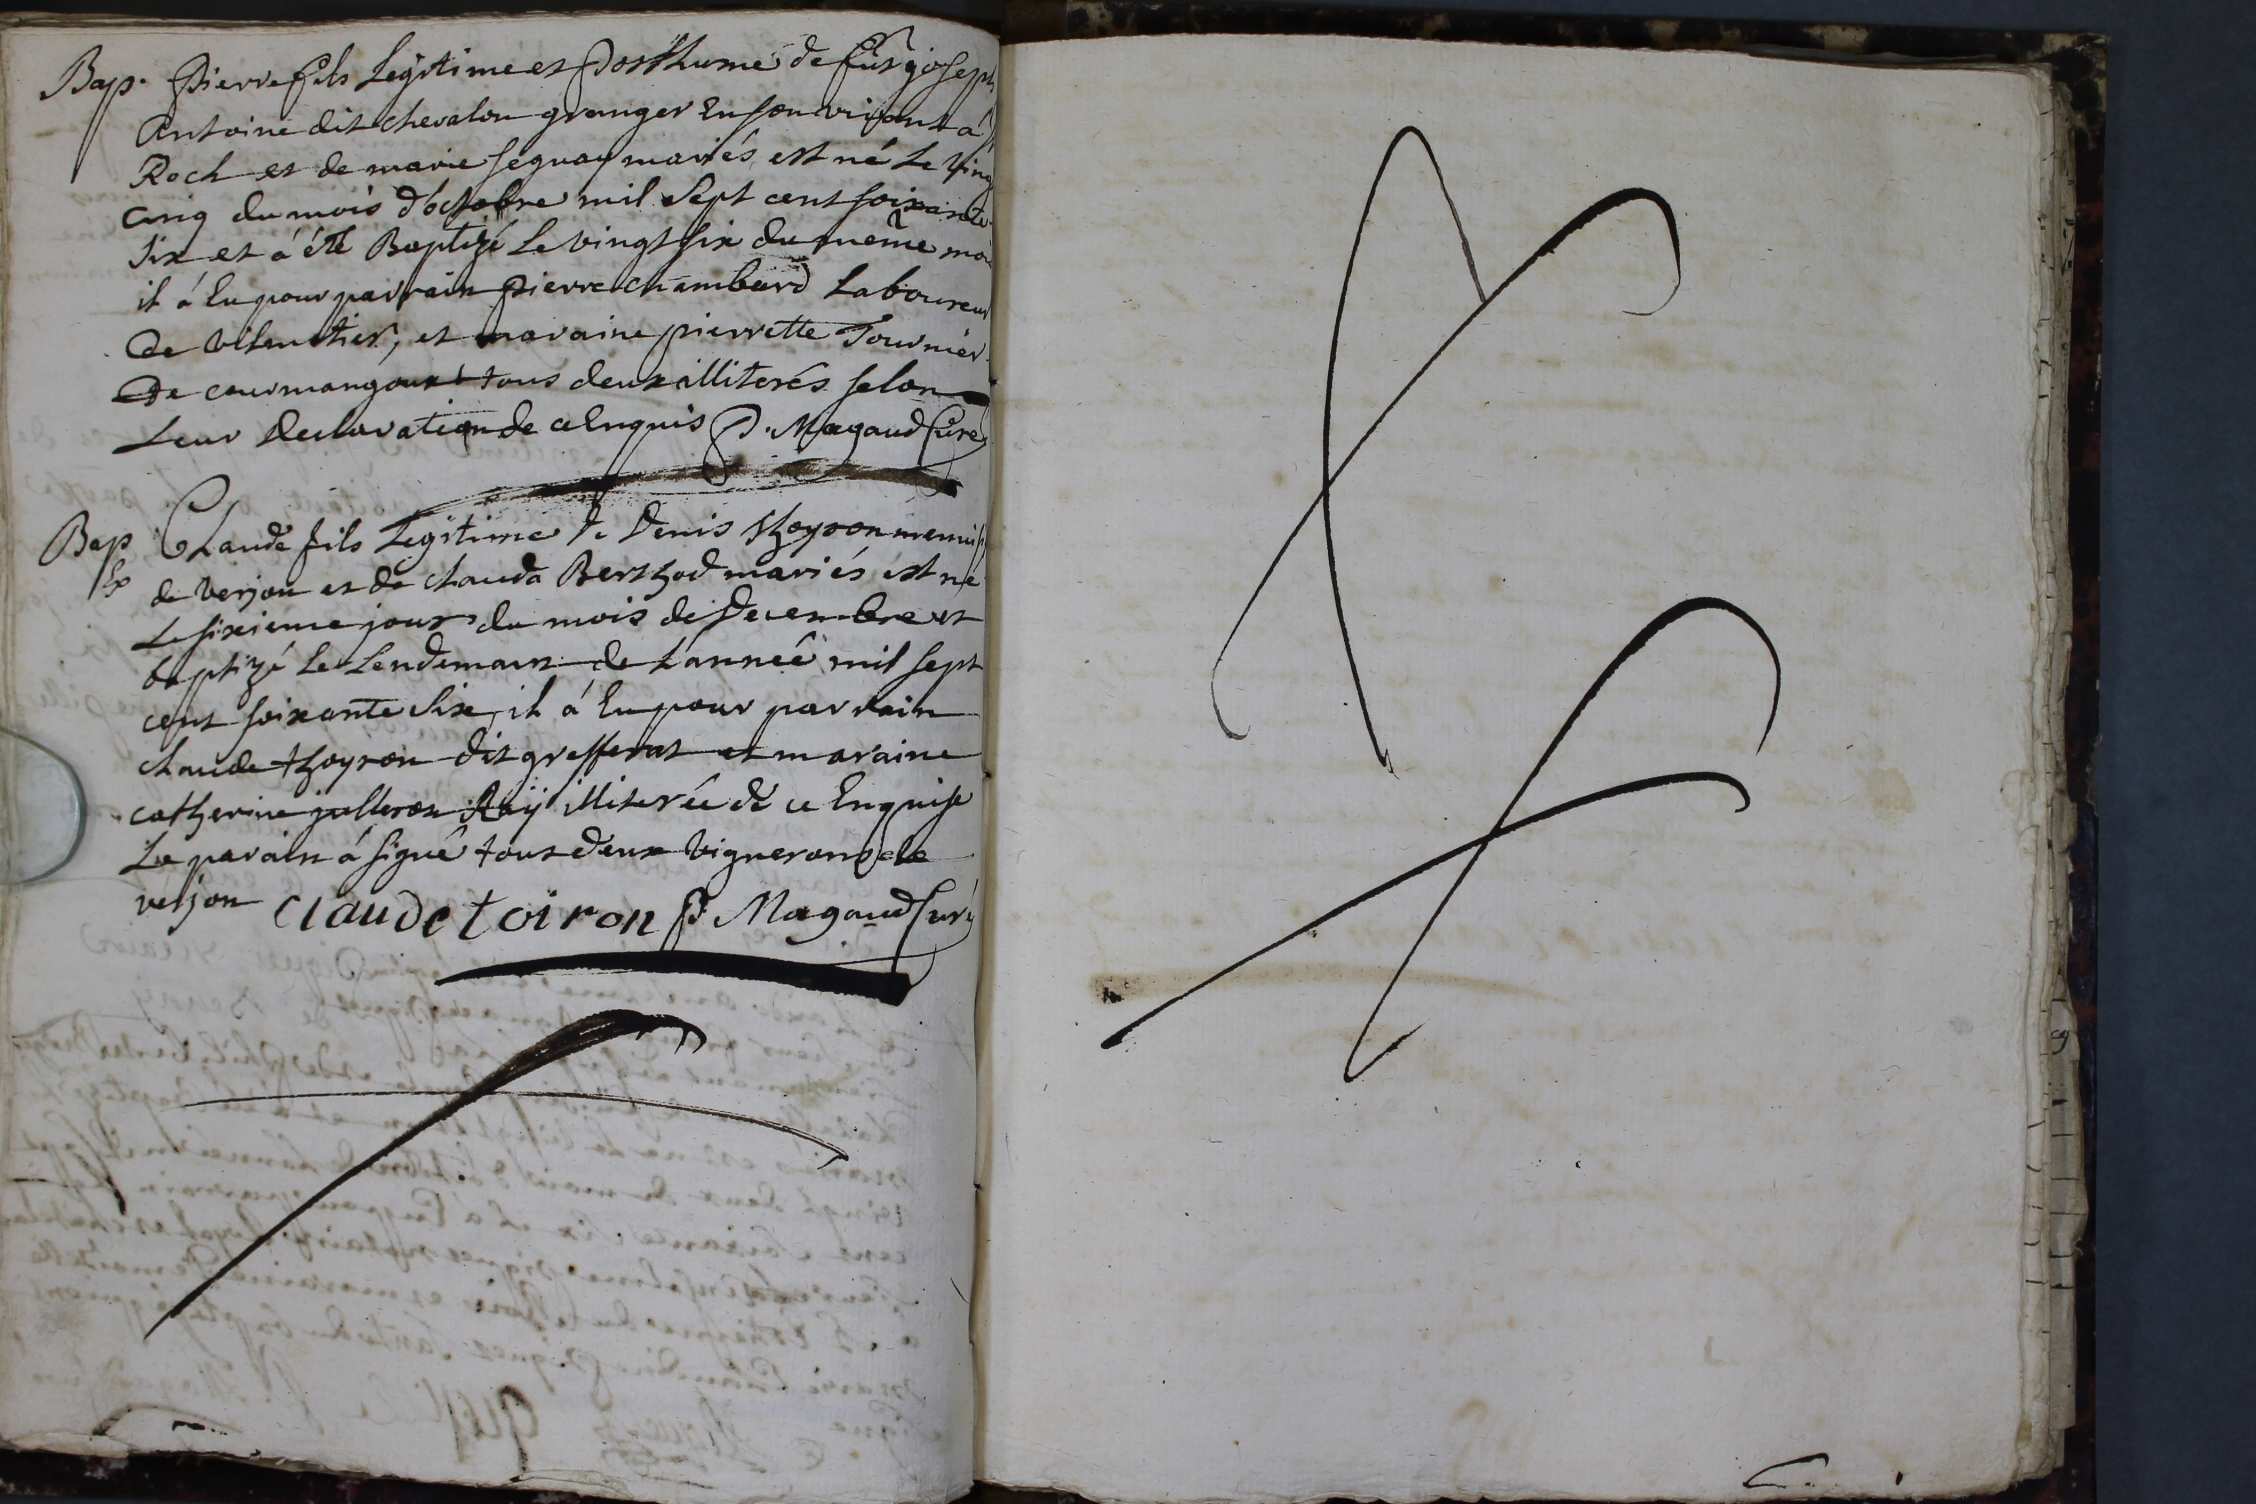 Bap. Pierre fils Legitime et Posthume de fut joseph
Antoine dit chevalon granger En son vivant a
Roch et de marie seguay mariés, est né Le ving
cinq du mois d'octobre mil Sept cent soixante
Six et á été Baptizé Le vingt six du même moi
il á Eu pour parrain pierre chambard Laboureur
de vilmotier, et maraine pierrette Tournier
De courmangoux tous deux illiterés selon
Leur declaration de ce Enquis P. Magaud Curé
Bap Claude fils Legitime de Denis thoyron menuis
Ex de verjon et de clauda Berthod mariés est né
Le sixieme jour du mois de Decembre et
baptizé Le Lendemain de L'anneé mil sept
cent soixante Six, il á Eu pour parrain
claude thoyron dit grefferat et maraine
catherine julleron illiterée de ce Enquise
Le parain á signé tous deux vignerons de
verjon claude toiron P. Magaud Curé